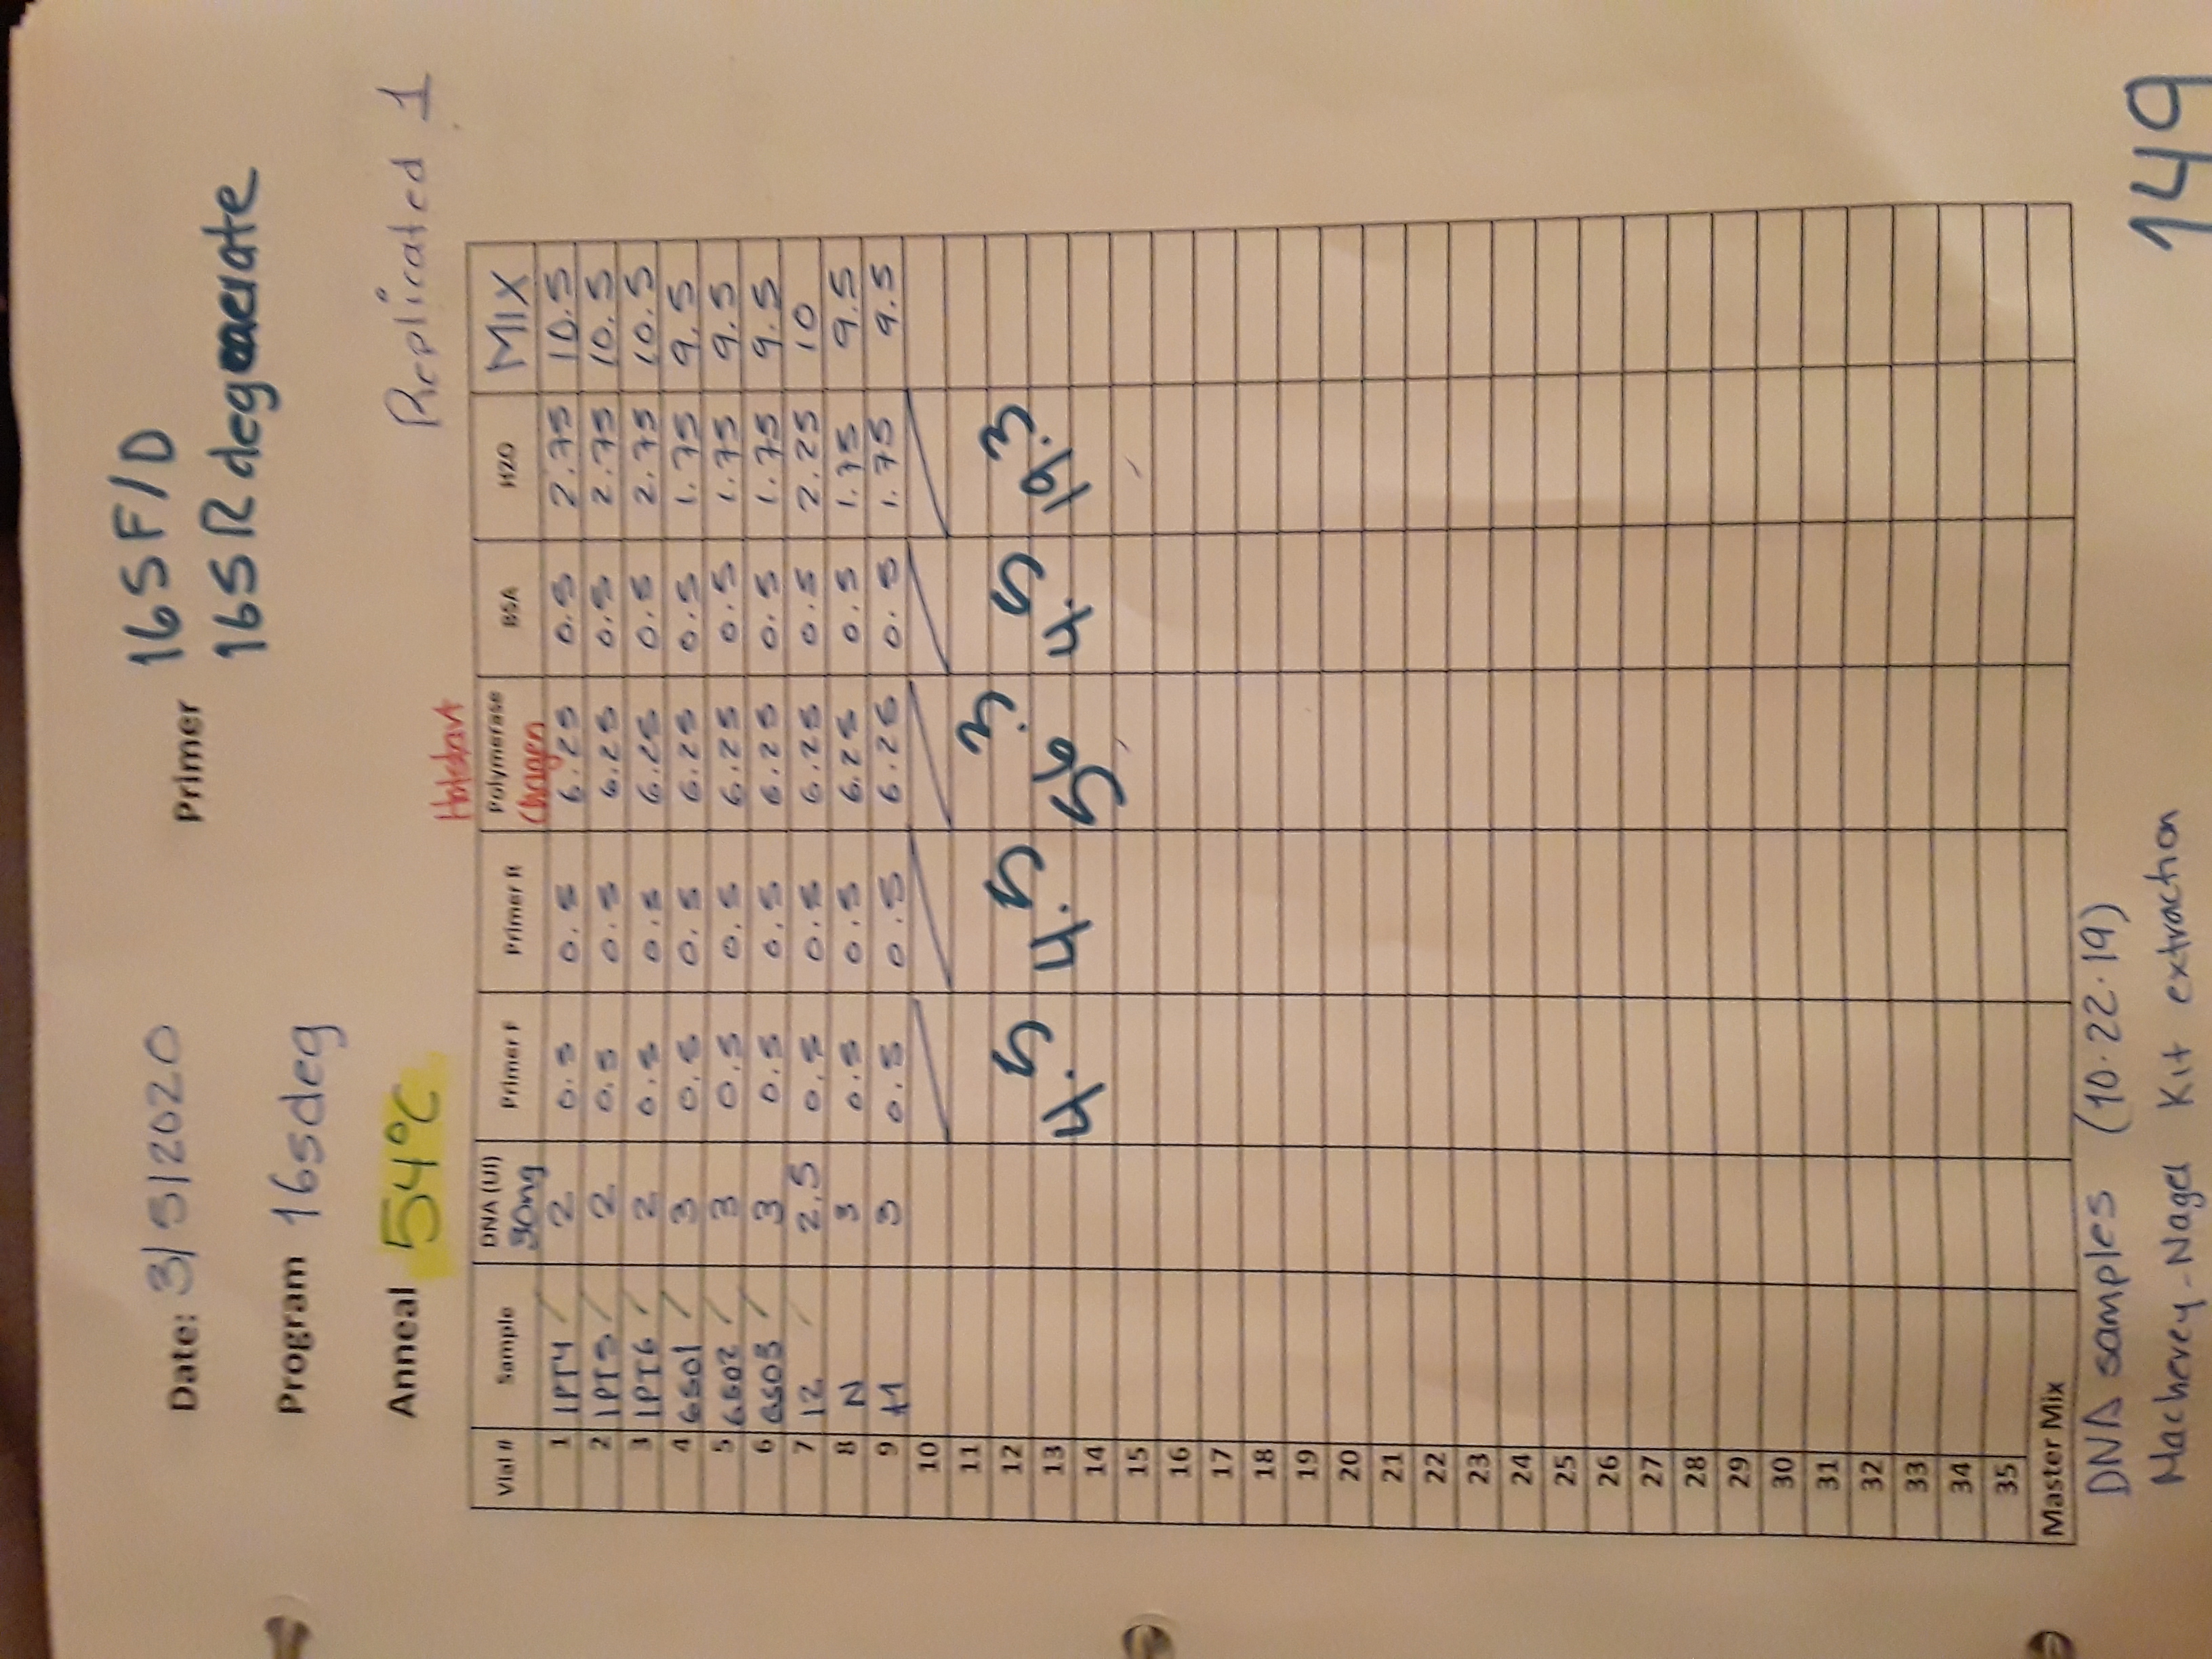 Date: 3/5/2020 Primer 16S F/D
16S R degenerate
Program 16sdeg
Anneal 54°C
Replicated 1
Hotstart
Vial # Sample DNA (Ul) 30ng Primer F Primer R Polymerase BSA H2O MIX
1 1PT4 2 0.5 0.5 6.25 0.5 2.75 10.5
2 1PT5 2 0.5 0.5 6.25 0.5 2.75 10.5
3 1PT6 2 0.5 0.5 6.25 0.5 2.75 10.5
4 6S01 3 0.5 0.5 6.25 0.5 1.75 9.5
5 6S02 3 0.5 0.5 6.25 0.5 1.75 9.5
6 6S03 3 0.5 0.5 6.25 0.5 1.75 9.5
7 12 2.5 0.5 0.5 6.25 0.5 2.25 10
8 N 3 0.5 0.5 6.25 0.5 1.75 9.5
9 +1 3 0.5 0.5 6.25 0.5 1.75 9.5
10
11
12
13
4.5 4.5 56.3 4.5 19.3
14
15
16
17
18
19
20
21
22
23
24
25
26
27
28
29
30
31
32
33
34
35
Master Mix
DNA samples (10.22.19)
Macherey-Nagel Kit extraction
149